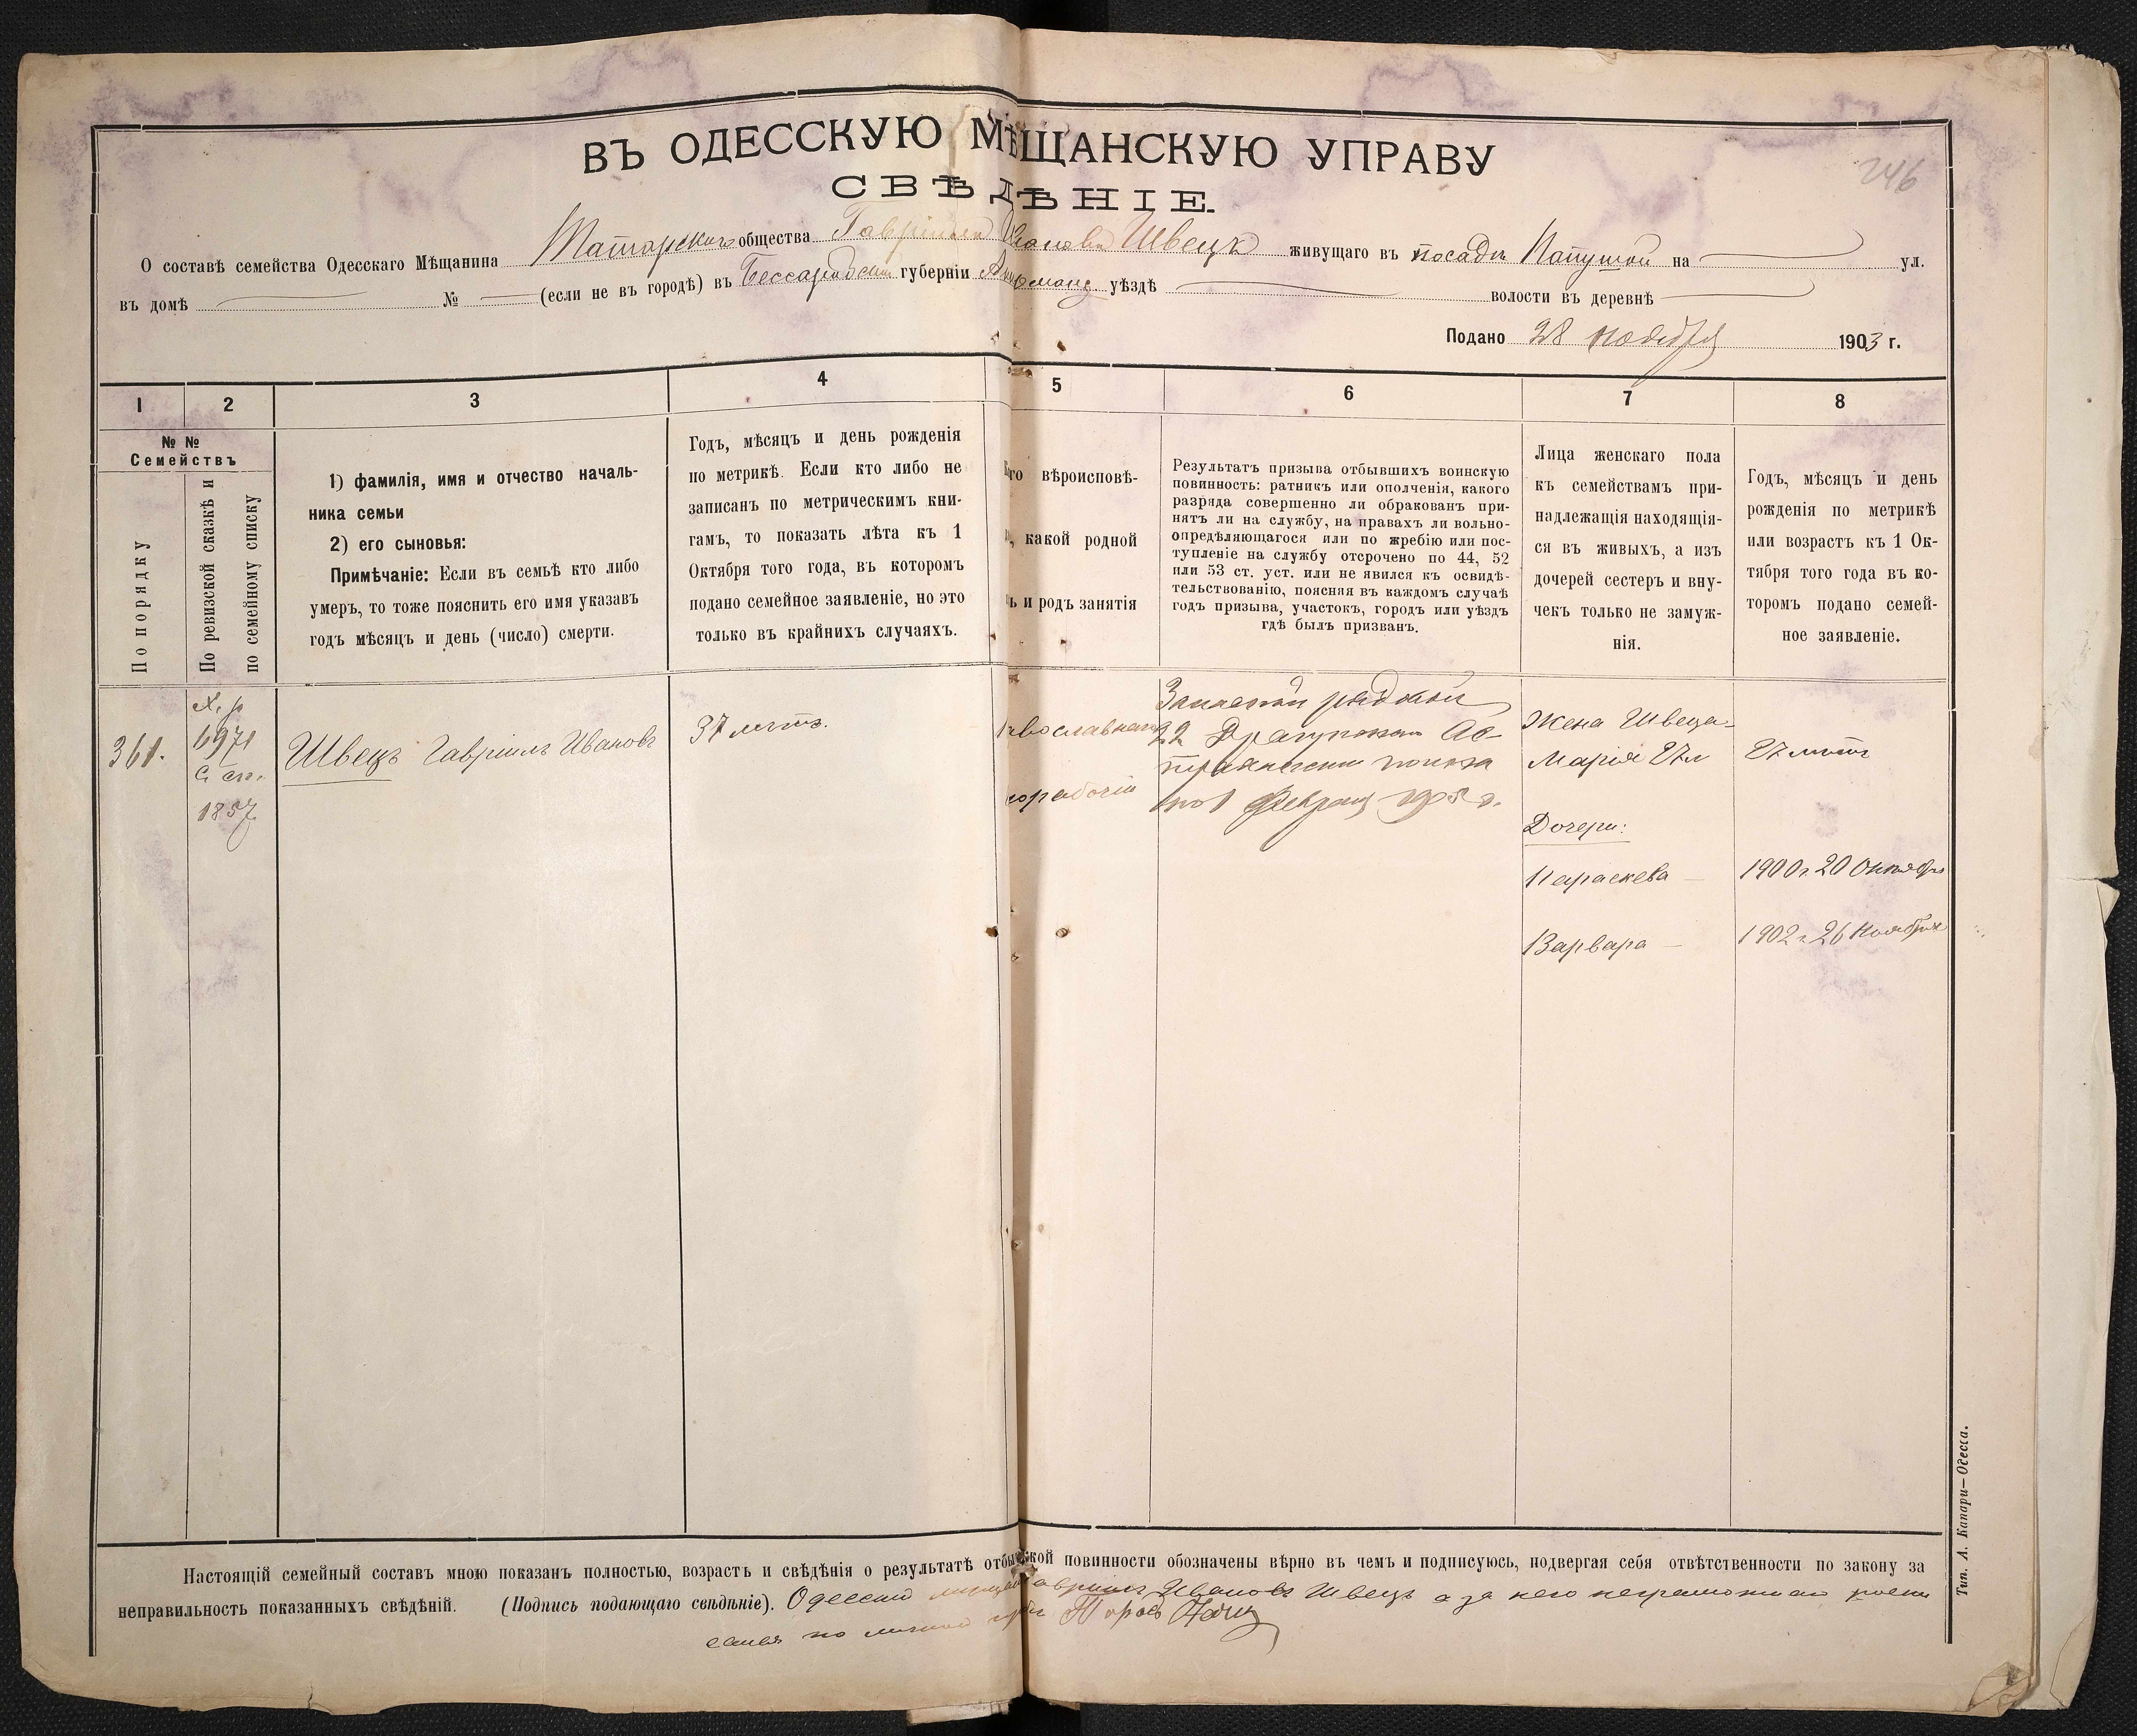 ВЪ ОДЕССКУЮ МѢЩАНСКУЮ УПРАВУ
246
СВѢДѢНІЕ.
О составѣ семейства Одесскаго Мѣщанина Татарскаго общества Гавріила Иванова Швецъ живущаго въ посадѣ Папушой на ул.
въ домѣ № (если не въ городѣ) въ Бессарабской губерніи уѣздѣ волости въ деревнѣ
Подано 28 ноября 1903 г.
1 2 3 4 5 6 7 8
№ №
Семействъ
По порядку
По ревизской сказкѣ и
по семейному списку
1) фамилія, имя и отчество началь-
ника семьи
2) его сыновья:
Примѣчаніе: Если въ семьѣ кто либо
умеръ, то тоже пояснить его имя указавъ
годъ мѣсяцъ и день (число) смерти.
Годъ, мѣсяцъ и день рожденія
по метрикѣ. Если кто либо не
записанъ по метрическимъ кни-
гамъ, то показать лѣта къ 1
Октября того года, въ которомъ
подано семейное заявленіе, но это
только въ крайнихъ случаяхъ.
вѣроисповѣ-
какой родной
и родъ занятія
Результатъ призыва отбывшихъ воинскую
повинность: ратникъ или ополченія, какого
разряда совершенно ли обракованъ при-
нятъ ли на службу, на правахъ ли вольно-
опредѣляющагося или по жребію или пос-
тупленіе на службу отсрочено по 44, 52
или 53 ст. уст. или не явился къ освидѣ-
тельствованію, поясняя въ каждомъ случаѣ
годъ призыва, участокъ, городъ или уѣздъ
гдѣ былъ призванъ.
Лица женскаго пола
къ семействамъ при-
надлежащія находящія-
ся въ живыхъ, а изъ
дочерей сестеръ и вну-
чекъ только не замуж-
нія.
Годъ, мѣсяцъ и день
рожденія по метрикѣ
или возрастъ къ 1 Ок-
тября того года въ ко-
торомъ подано семей-
ное заявленіе.
361.
6971
С. сп.
1857
Швецъ Гавріилъ Ивановъ
37 лѣтъ.
Запасной рядовой
22 Драгунскаго Ас-
траханскаго полка
по 1 февраля 1905 г.
Жена Швеца
Марія 27 л
27 лѣтъ
Дочери:
Параскева — 1900 г. 20 Октября
Варвара — 1902 г. 26 Ноября
Настоящій семейный составъ мною показанъ полностью, возрастъ и свѣдѣнія о результатѣ повинности обозначены вѣрно въ чемъ и подписуюсь, подвергая себя отвѣтственности по закону за
неправильность показанныхъ свѣдѣній. (Подпись подающаго свѣдѣніе). Одесскій мѣщан Гавріилъ Ивановъ Швецъ а за него неграмотнаго
по личной
Тип. А. Капари—Одесса.